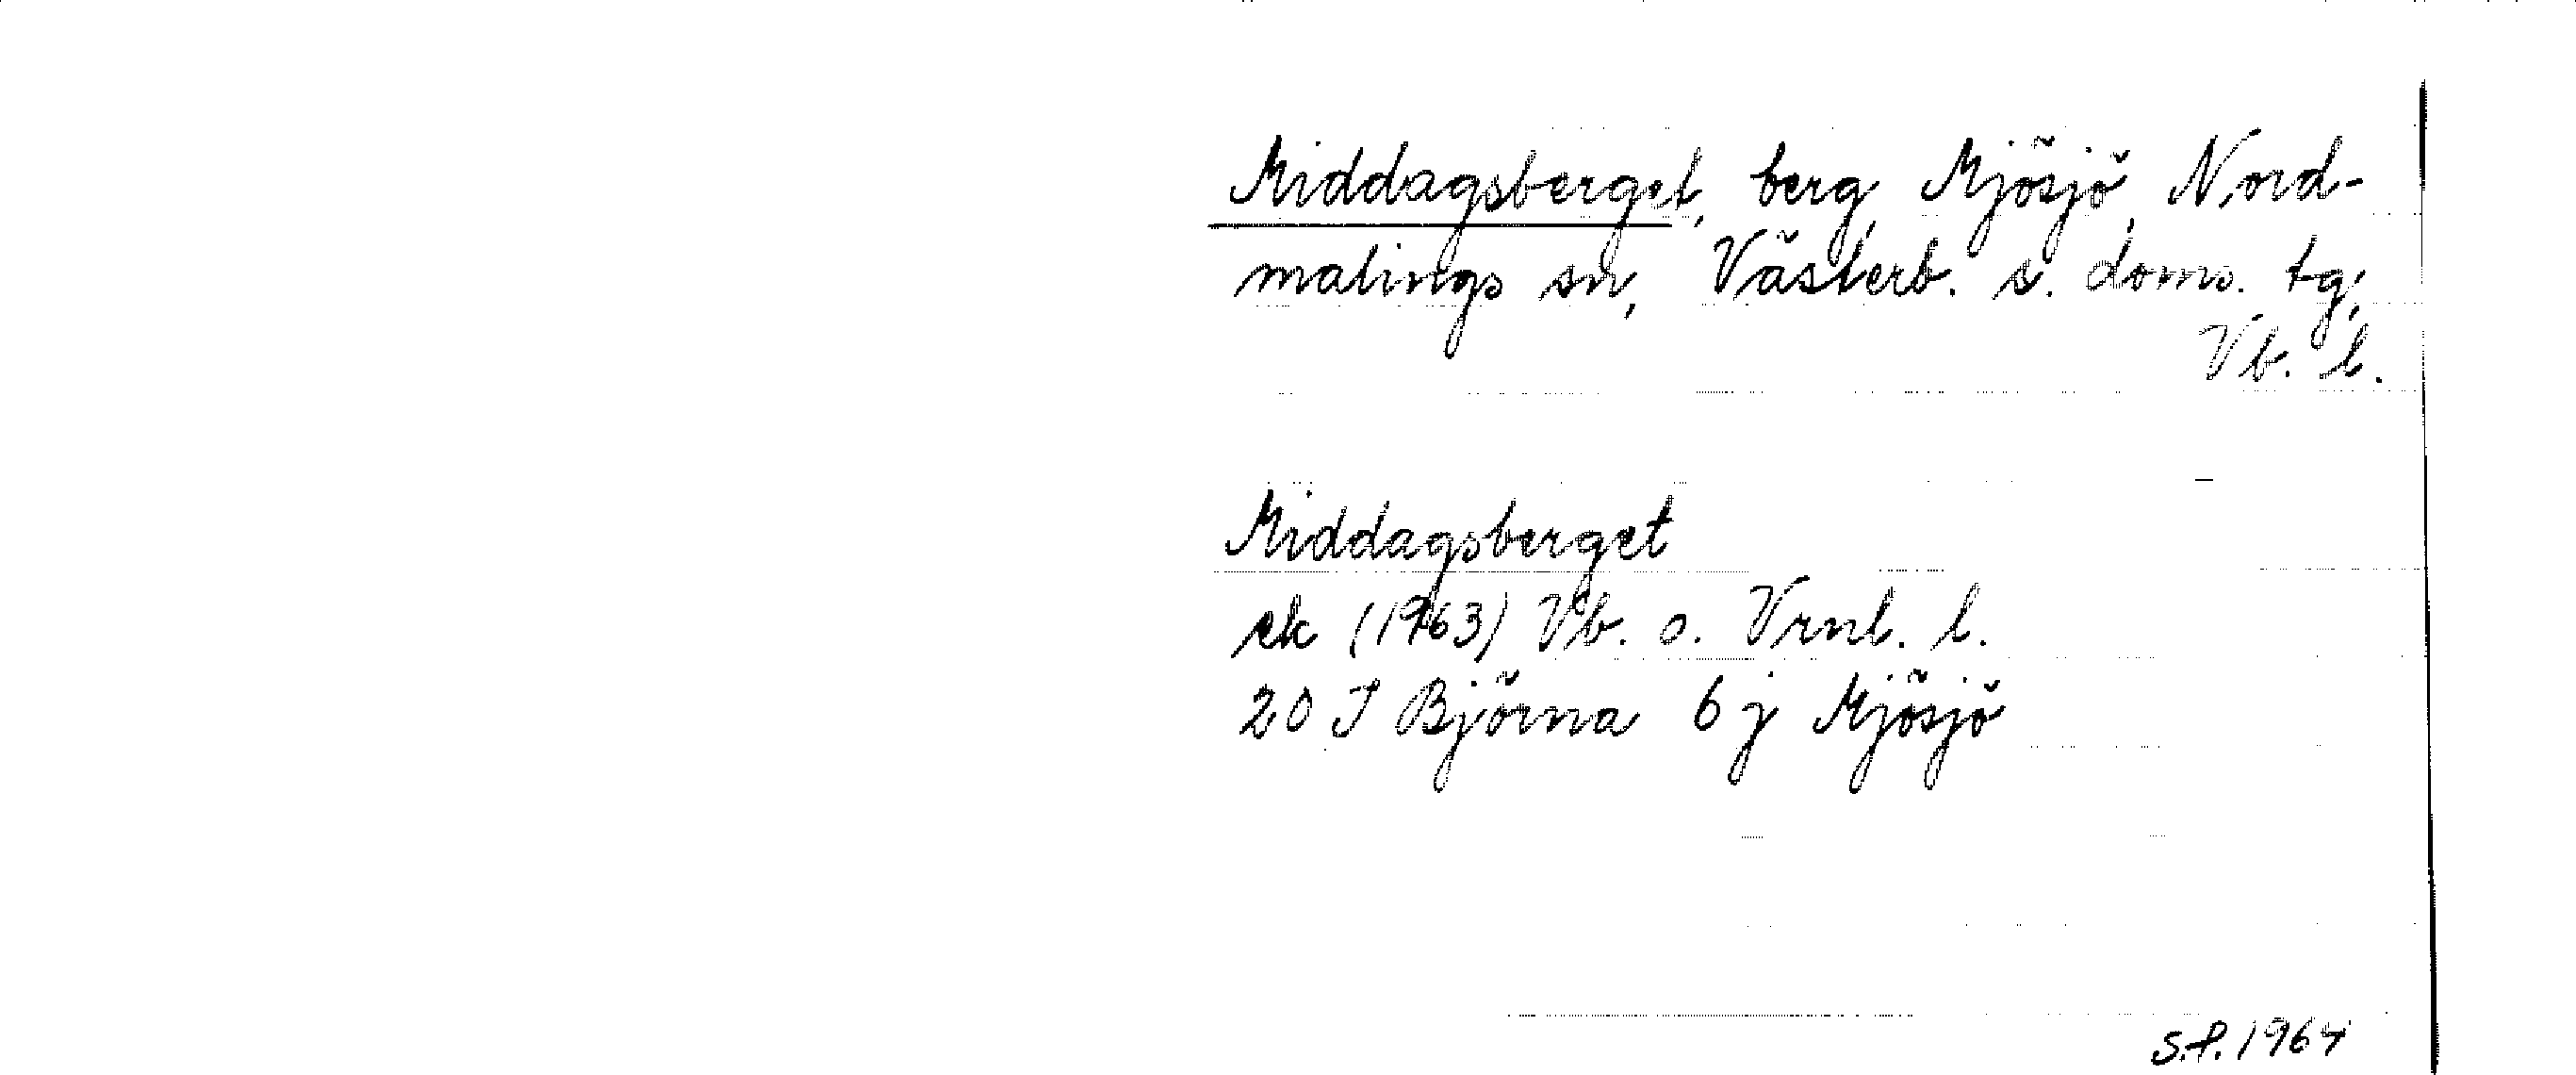 Middagsberget, berg, Mjösjö, Nord-
malings sn, Västerb. s. doms. tg,
Vb. l.
Middagsberget
ek (1963) Vb. o. Vrnl. l.
20 I Björna 6 j Mjösjö
S.P. 1964